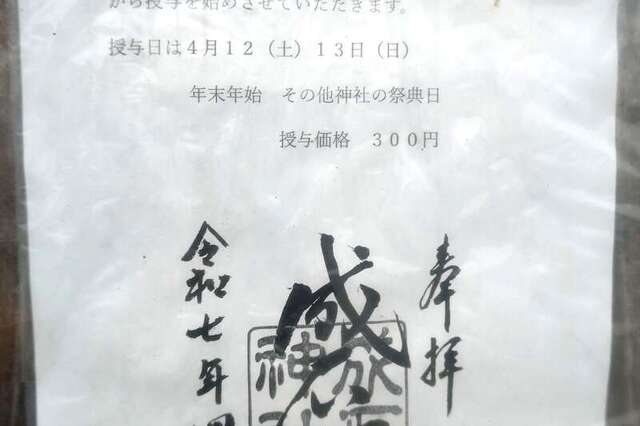 から授与を始めさせていただきます。
授与日は４月１２（土）１３日（日）
年末年始　その他神社の祭典日
授与価格　３００円
奉拝
成
神
令和七年